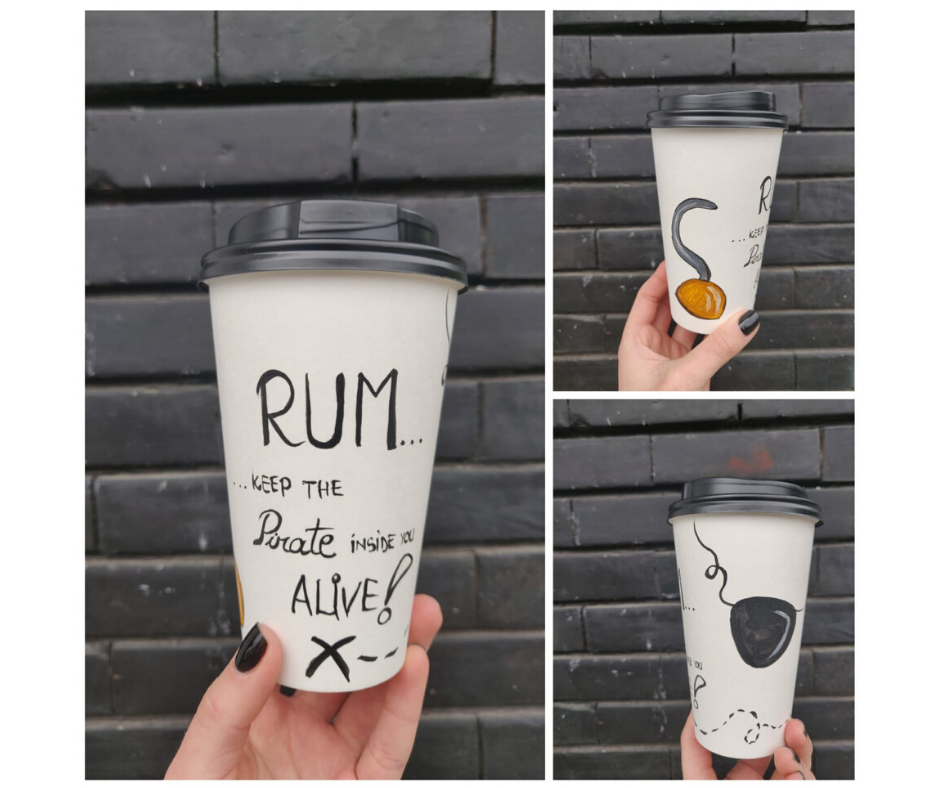 RUM...
...KEEP THE
Pirate iNSiDE YOU
ALiVE!
X
R
...KEEP